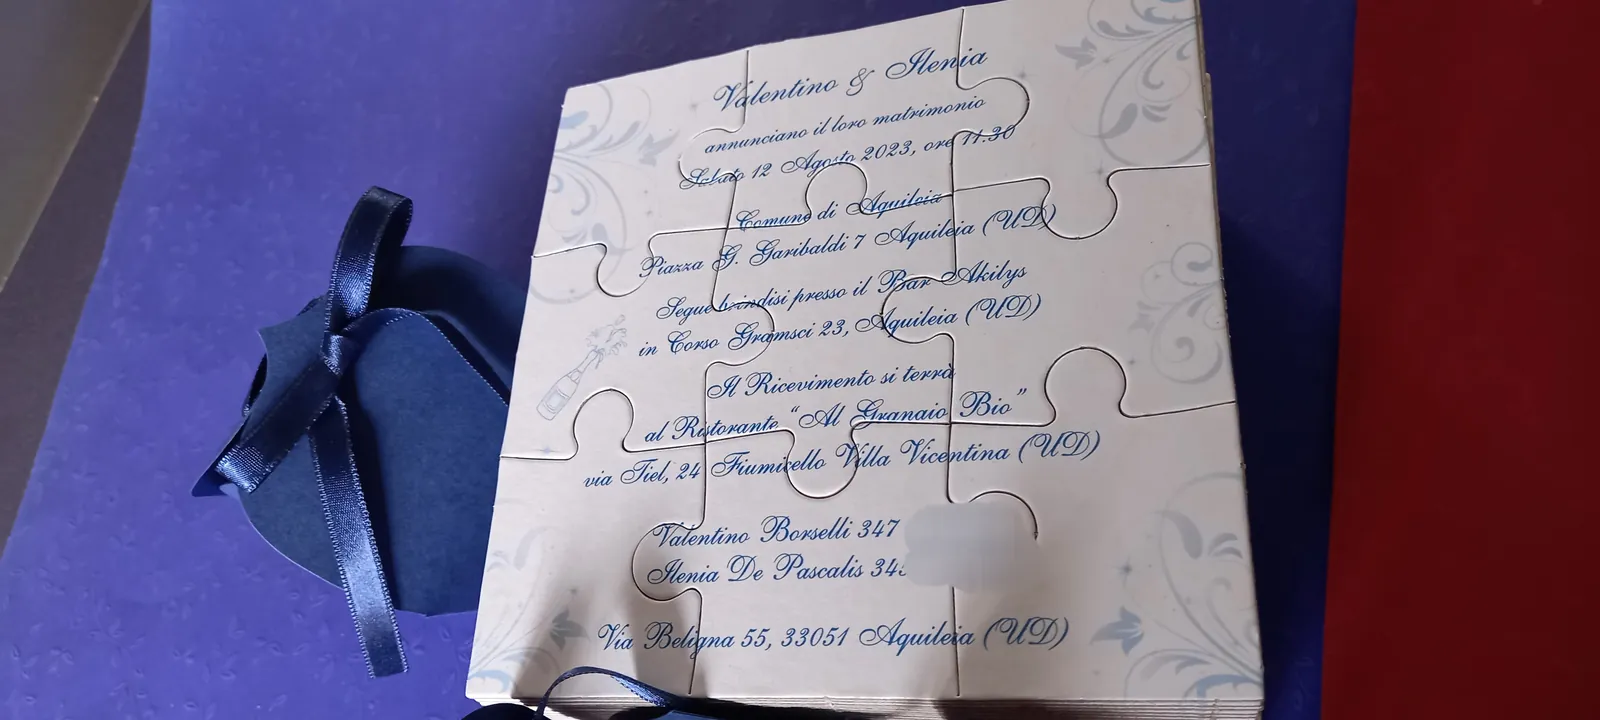 Valentino & Ilenia
annunciano il loro matrimonio
Sabato 12 Agosto 2023, ore 11.30
Comune di Aquileia
Piazza G. Garibaldi 7 Aquileia (UD)
Segue brindisi presso il Bar Akilys
in Corso Gramsci 23, Aquileia (UD)
Il Ricevimento si terrà
al Ristorante “Al Granaio Bio”
via Tiel, 24 Fiumicello Villa Vicentina (UD)
Valentino Borselli 347
Ilenia De Pascalis 34
Via Beligna 55, 33051 Aquileia (UD)